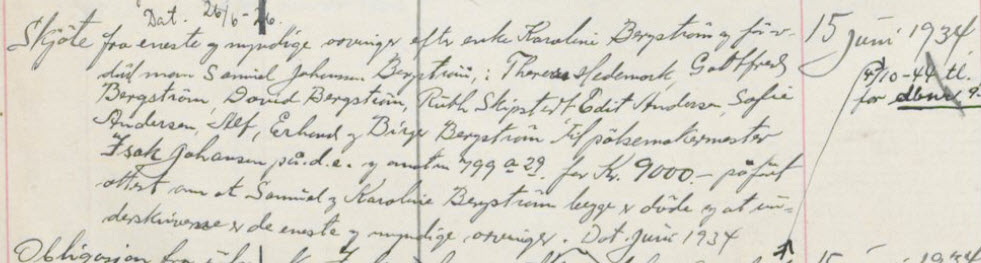 Dat. 26/6-26.
Skjöte fra eneste og myndige arvinger efter enke Karoline Bergström og för-
död man Samuel Johansen Bergström, : Therese Hedemark, Gottfred
Bergström, David Bergström, Ruth Skipstedt Edit Andersen, Sofie
Andersen, Alf, Erhard og Birger Bergström til pölsemakermester
Isak Johansen på d.e. og anstm 799 a 29. for Kr. 9000.- påfört
attest om at Samuel og Karoline Bergström begge er döde og at un-
derskriverne er de eneste og myndige arvinger. Dat. juni 1934
15 juni 1934
4/10-44 tl.
for dbnr 9
Obligasjon fra
15 1934